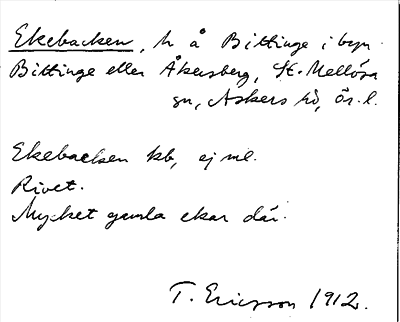 Ekebacken, h å Bittinge i byn
Bittinge eller Åkersberg, St. Mellösa
sn, Askers hd, ör. l.
Ekebacken kb, ej ml.
Rivet.
Mycket gamla ekar där.
T. Ericsson 1912.